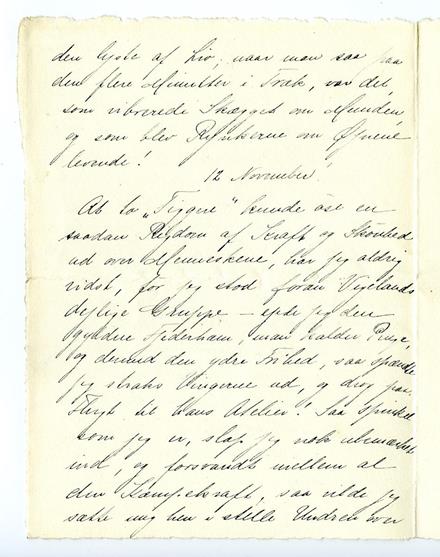 den lyste af Liv; naar man saa paa
den flere Minutter i Træk, var det,
som vibrerede Skægget om Munden,
og som blev Rynkerne om Øjnene
levende!
12 November!
At to „Tiggere“ kunde øse en
saadan Rigdom af Kraft og Skønhed
ud over Menneskene, har jeg aldrig
vidst, før jeg stod foran Vigelands
dejlige Gruppe —
gyldne man kalder Penge,
og dermed den ydre Frihed, saa spændte
jeg straks Vingerne ud, og drog paa
Flugt til Hans Atelier! Saa
som jeg er, slap jeg nok ubemærket
ind, og forsvandt mellem al
den Kæmpekraft, saa vilde jeg
sætte mig hen i stille Undren over